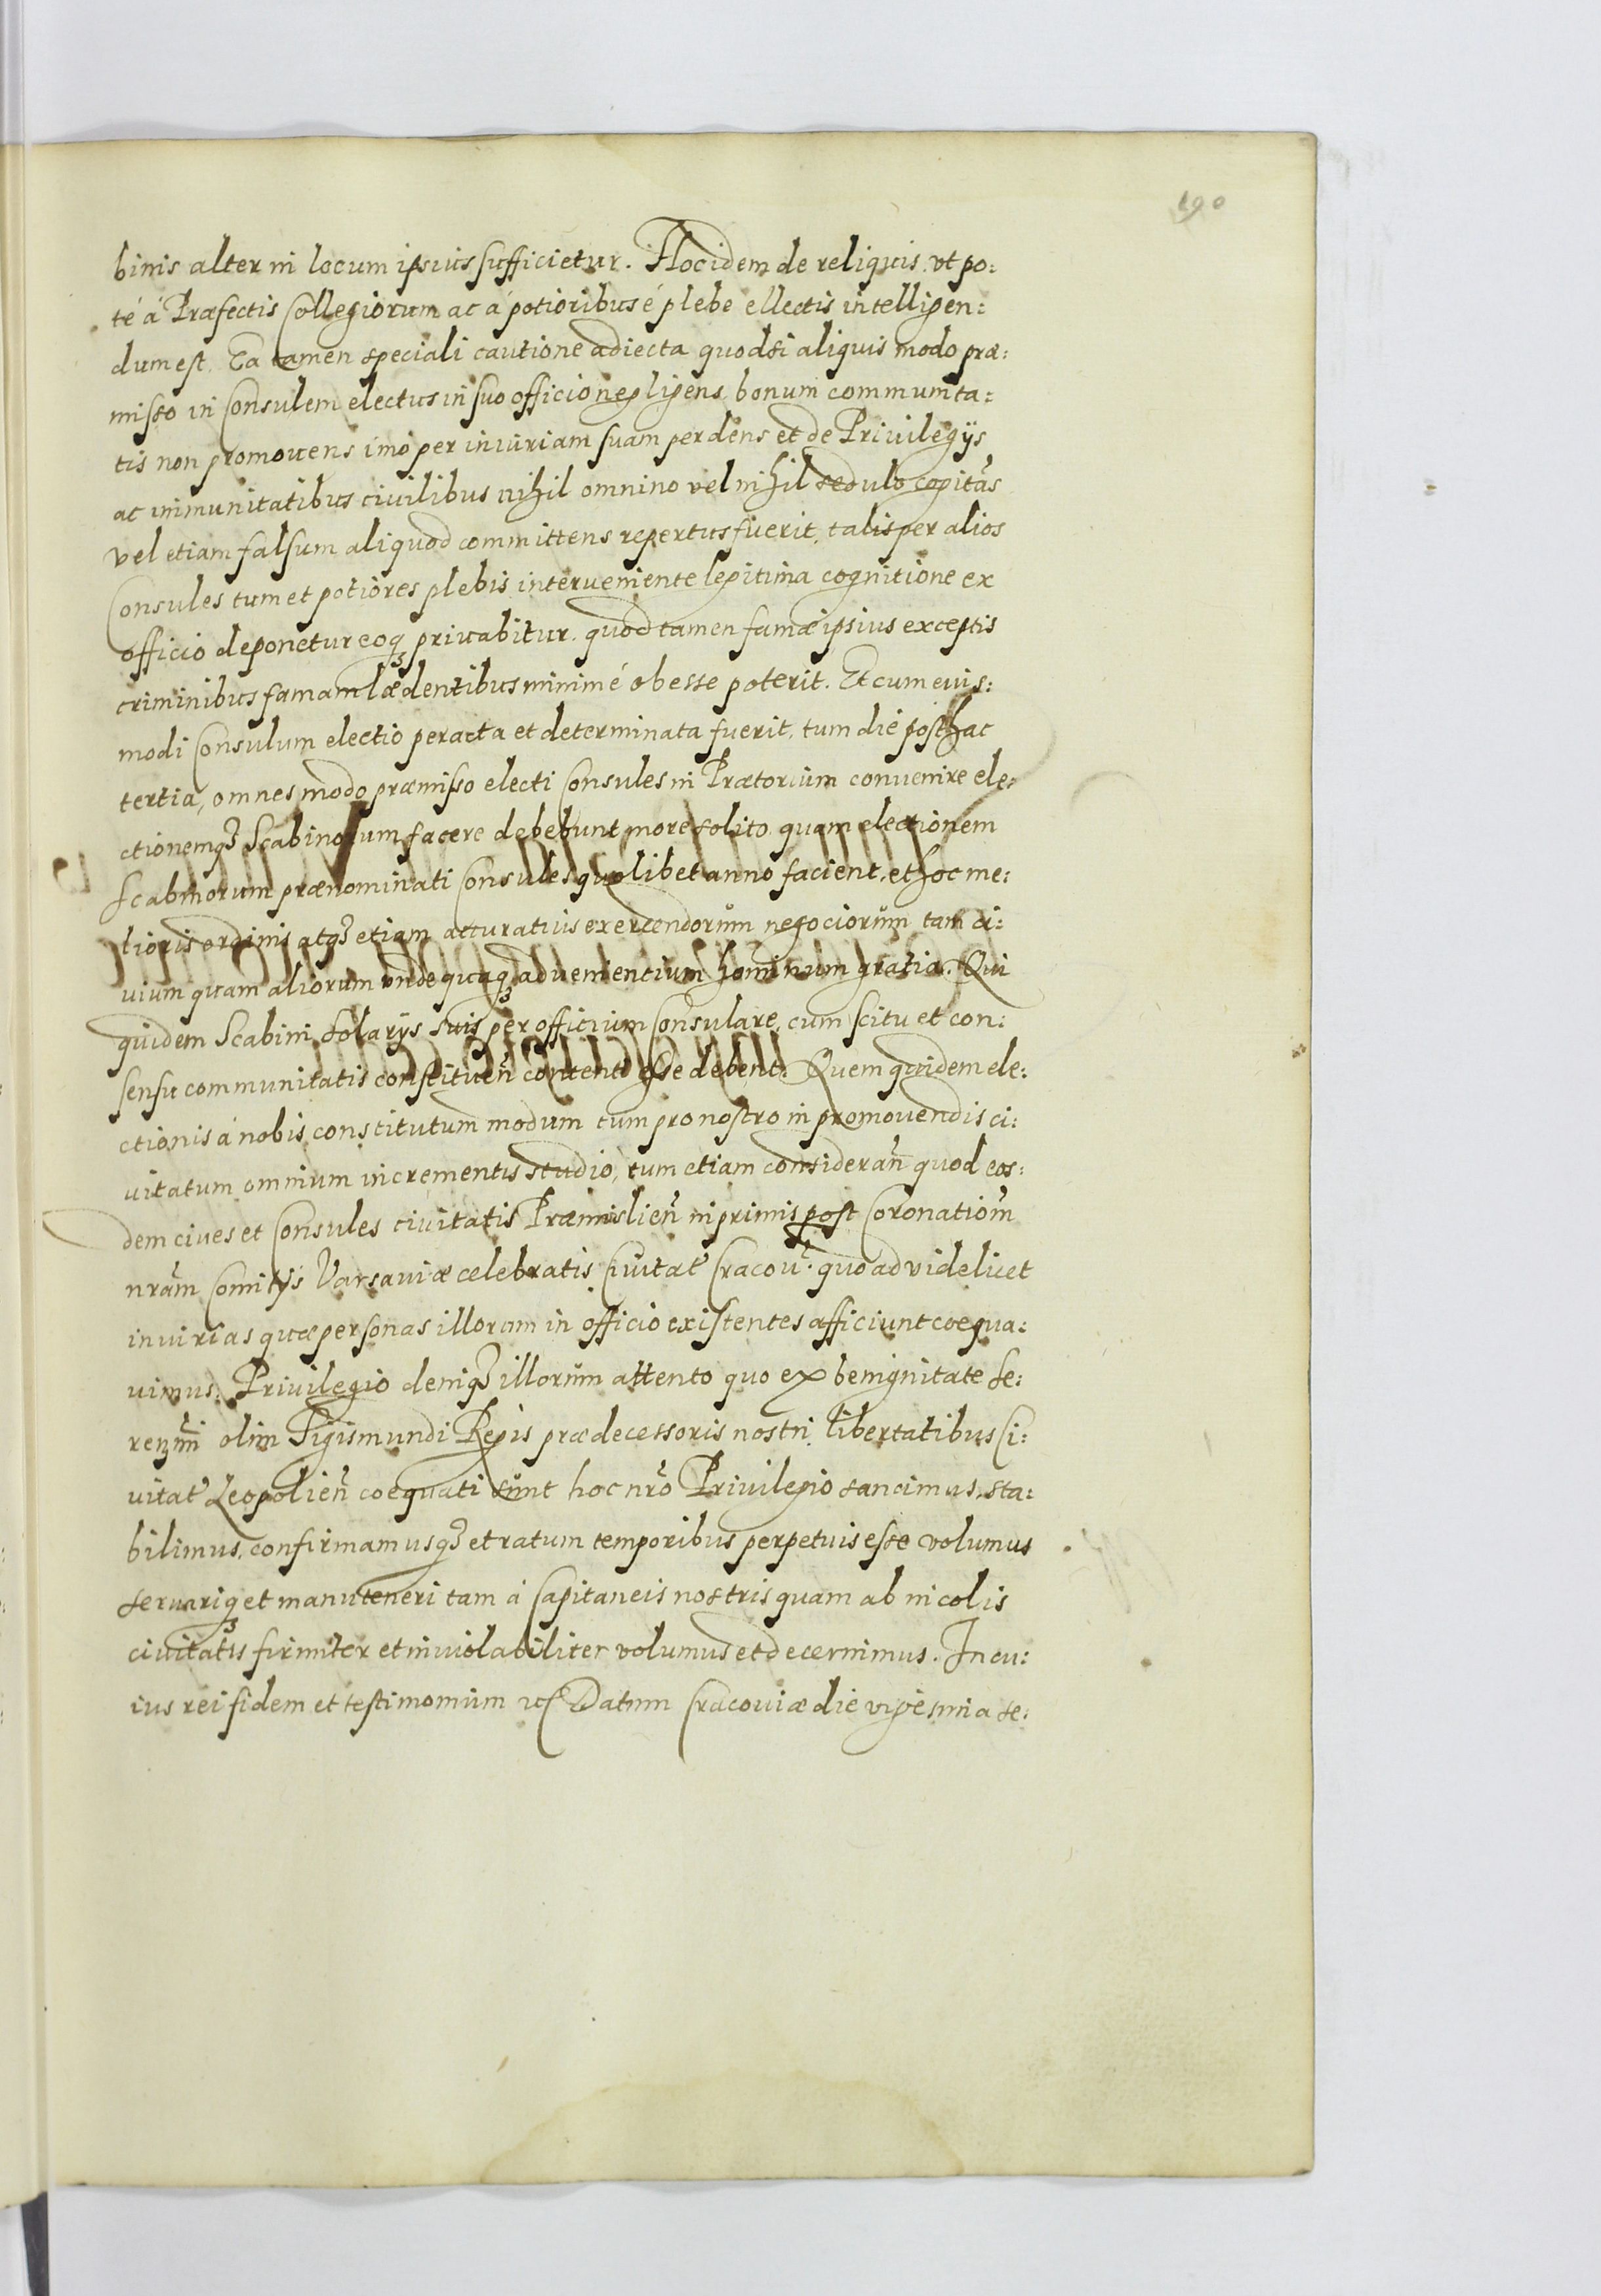 190
binis alter in locum ipsius sufficietur. Hoc idem de reliquis ut po:
té á Præfectis Collegiorum ac á potioribus é plebe ellectis intelligen:
dum est. Ea tamen speciali cautione adiecta quod si aliquis modo præ:
misso in Consulem electus in suo officio negligens bonum communita:
tis non promovens imo per iniuriam suam perdens et de Privilegijs
ac immunitatibus civilibus nihil omnino vel nihil sedulo cogitãs
vel etiam falsum aliquod committens repertus fuerit, talis per alios
Consules tum et potiores plebis interveniente legitima cognitione ex
officio deponetur eoq; privabitur. quod tamen famæ ipsius exceptis
criminibus famam lædentibus minimé obesse poterit. Et cum euis:
modi Consulum electio peracta et determinata fuerit, tum die posthac
tertia, omnes modo præmisso electi Consules in Prætorium convenire ele:
ctionemq; Scabinorum facere debebunt more solito quam electionem
Scabinorum prænominati Consules quolibet anno facient, et hoc me:
lioris ordinis atq; etiam accuratius exercendorum negociorum tam ci:
vium quam aliorum undequaq; advenientium hominum gratia. Qui
quidem Scabini solarijs suis per officium Consulare, cum scitu et con:
sensu communitatis constituen̄ contenti esse debent. Quem quidem ele:
ctionis á nobis constitutum modum tum pro nostro in promovendis ci:
vitatum omnium incrementis studio, tum etiam consideran̄ quod eos:
dem cives et Consules civitatis Præmislien̄ inprimis post Coronatiom̄
nrãm Comitijs Varsaviæ celebratis Civitat Cracov̄. quo ad videlicet
iniurias quæ personas illorum in officio existentes afficiunt coequa:
vimus: Privilegio deniq; illorum attento quo ex benignitate Se:
renm̄i olim Sigismundi Regis prædecessoris nostri libertatibus Ci:
vitat Leopolien̄ coequati sunt hoc nrō Privilegio sancimus, sta:
bilimus, confirmamusq; et ratum temporibus perpetuis esse volumus
servariq; et manuteneri tam á Capitaneis nostris quam ab incolis
civitatis firmiter et inviolabiliter volumus et decernimus. In cu:
ius rei fidem et testimonium Datum Cracoviæ die vigesima se: